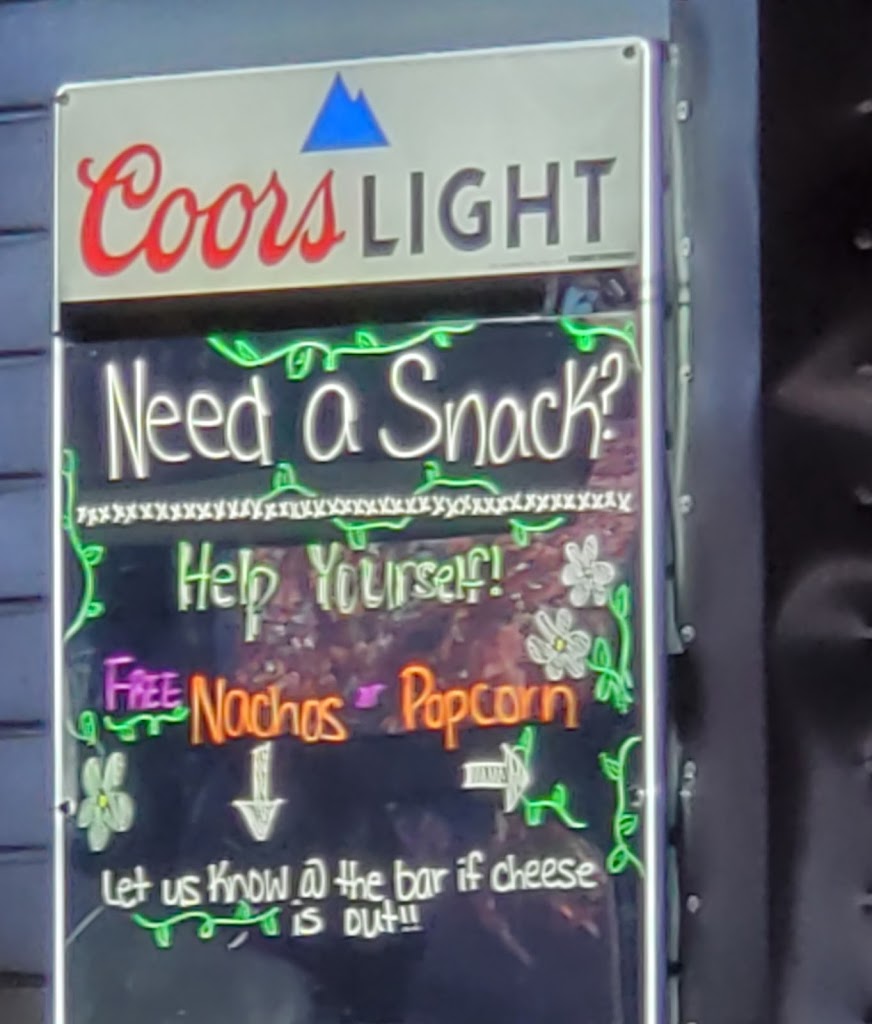 Coors LIGHT
Need a Snack?
xxxxxxxxxxxxxxxxxxxxxxxxxxxxxxxxxxxxx
Help Yourself!
FREE Nachos or Popcorn
Let us know @ the bar if cheese
is out!!